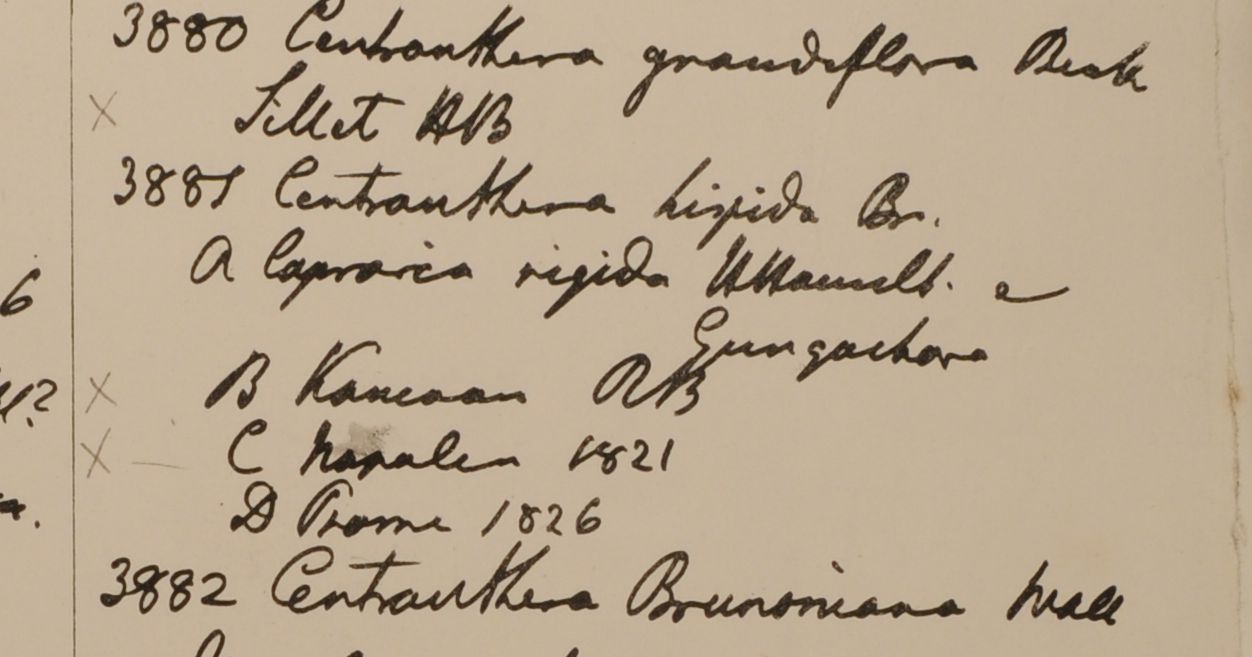 3880 Centranthera grandiflora Benth
× Sillet HB
3881 Centranthera hispida Br.
6
A Capraria rigida HHamilt. e
Gungachora
× B Kamaon RB
× – C Napalia 1821
D Prome 1826
3882 Centranthera Brunoniana Wall